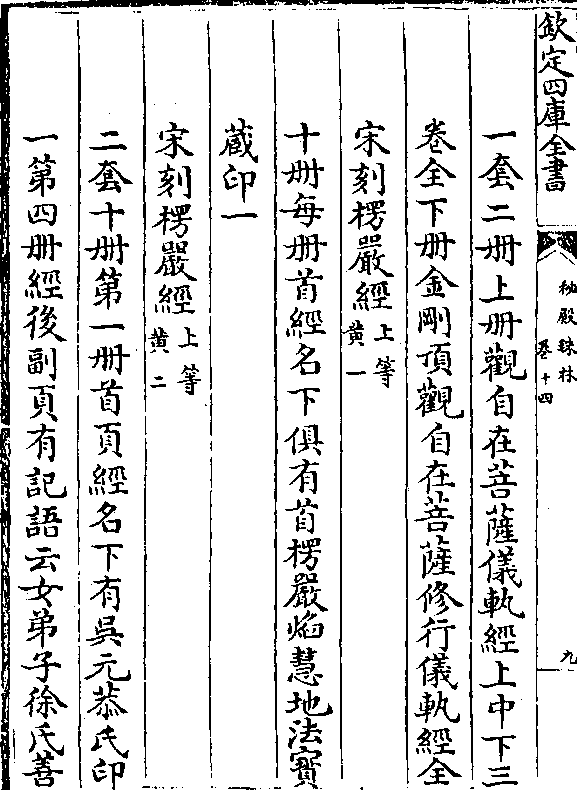 欽定四庫全書
秘殿珠林
卷十四
九
一套二册上册觀自在菩薩儀軌經上中下三
卷全下册金剛頂觀自在菩薩修行儀軌經全
宋刻楞嚴經上等
黄一
十册每册首經名下俱有首楞嚴焰慧地法寳
蔵印一
宋刻楞嚴經上等
黄二
二套十册第一册首頁經名下有吳元恭氏印
一第四册經後副頁有記語云女弟子徐氏善